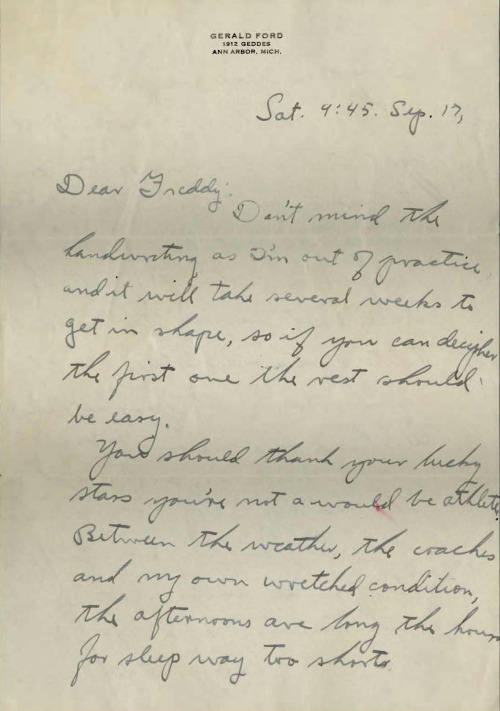 GERALD FORD
1912 GEDDES
ANN ARBOR, MICH.
Sat. 4:45. Sep. 17,
Dear Freddy:
Don't mind the
handwriting as I'm out of practice
and it will take several weeks to
get in shape, so if you can decipher
the first one the rest should
be easy.
You should thank your lucky
stars you're not a would be athlete.
Between the weather, the coaches
and my own wretched condition,
the afternoons are long the hours
for sleep way too short.